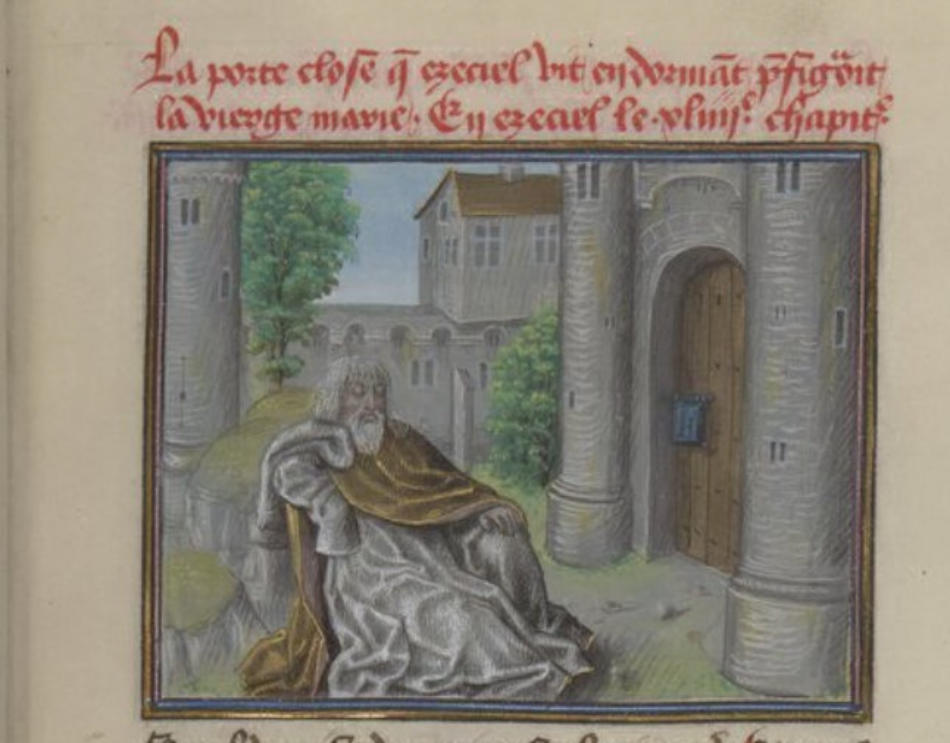 La porte close q̄ ezeciel vit en dormāt p̄figōit
la vierge marie. En ezeciel le .xliiij.e chapitr̄e